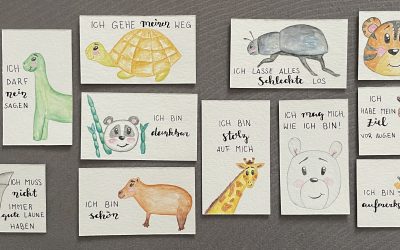 ICH
DARF
nein
SAGEN
ICH GEHE meinen WEG
ICH LASSE ALLES
Schlechte LOS
ICH BIN
dankbar
ICH BIN
stolz
AUF MICH
ICH mag MICH,
WIE ICH BIN!
ICH
HABE MEIN
Ziel
VOR AUGEN
ICH MUSS
nicht
IMMER
gute LAUNE
HABEN
ICH BIN
schön
ICH BIN